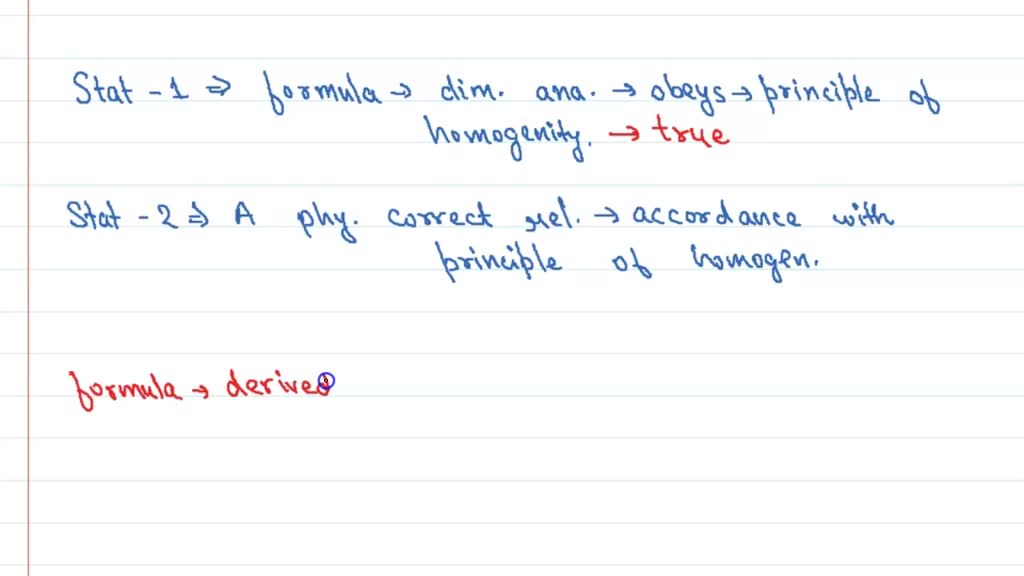 Stat - 1 ⇒ formula → dim. ana. → obeys → principle of
homogenity. → true
Stat - 2 ⇒ A phy. correct rel. → accordance with
principle of homogen.
formula → derived